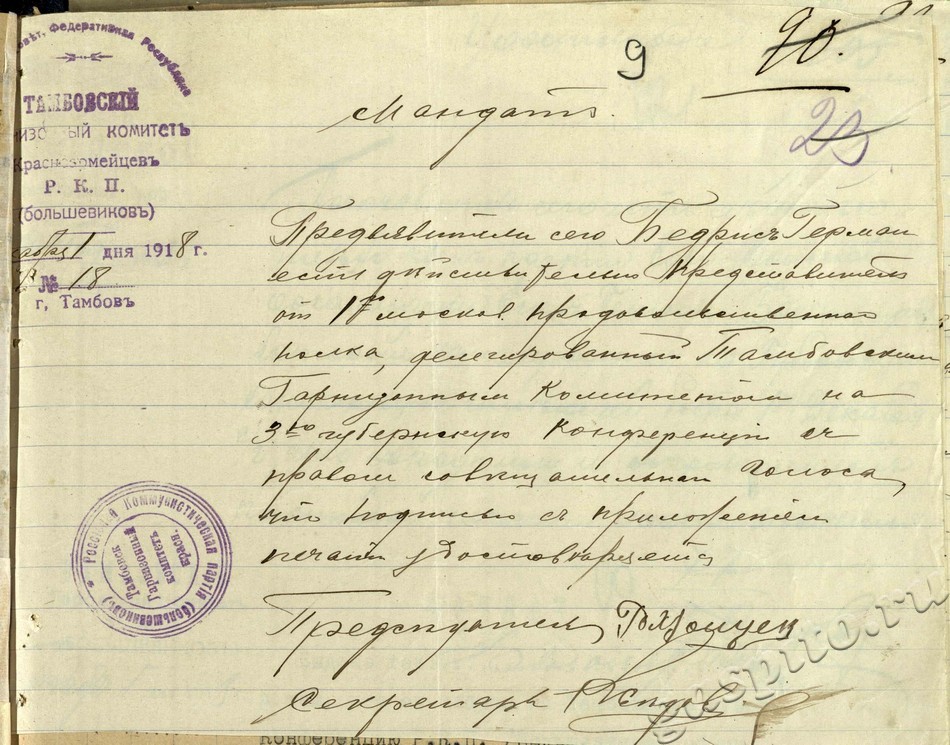 Совѣт. Федеративная Республика
9
90.
23
ТАМБОВСКІЙ
ный комитетъ
Красноармейцевъ
Р. К. П.
(большевиковъ)
1 дня 1918 г.
№ 18
г, Тамбовъ
Мандатъ.
Предъявитель сего Бедрисъ Герман
есть дѣйствительно представитель
от 1го москов. продовольственнаго
полка, делегированный Тамбовским
Гарнизонным Комитетом на
3ю губернскую Конференцію съ
правом совѣщательнаго голоса,
что подписью съ приложеніем
печати удостовѣряется
Россія Коммунистическая партія (большевиков)
Тамбовск
Гарнизонный
комитетъ
красн
Предсѣдатель
Секретарь
gaspito.ru
конференцию Р.К.П.